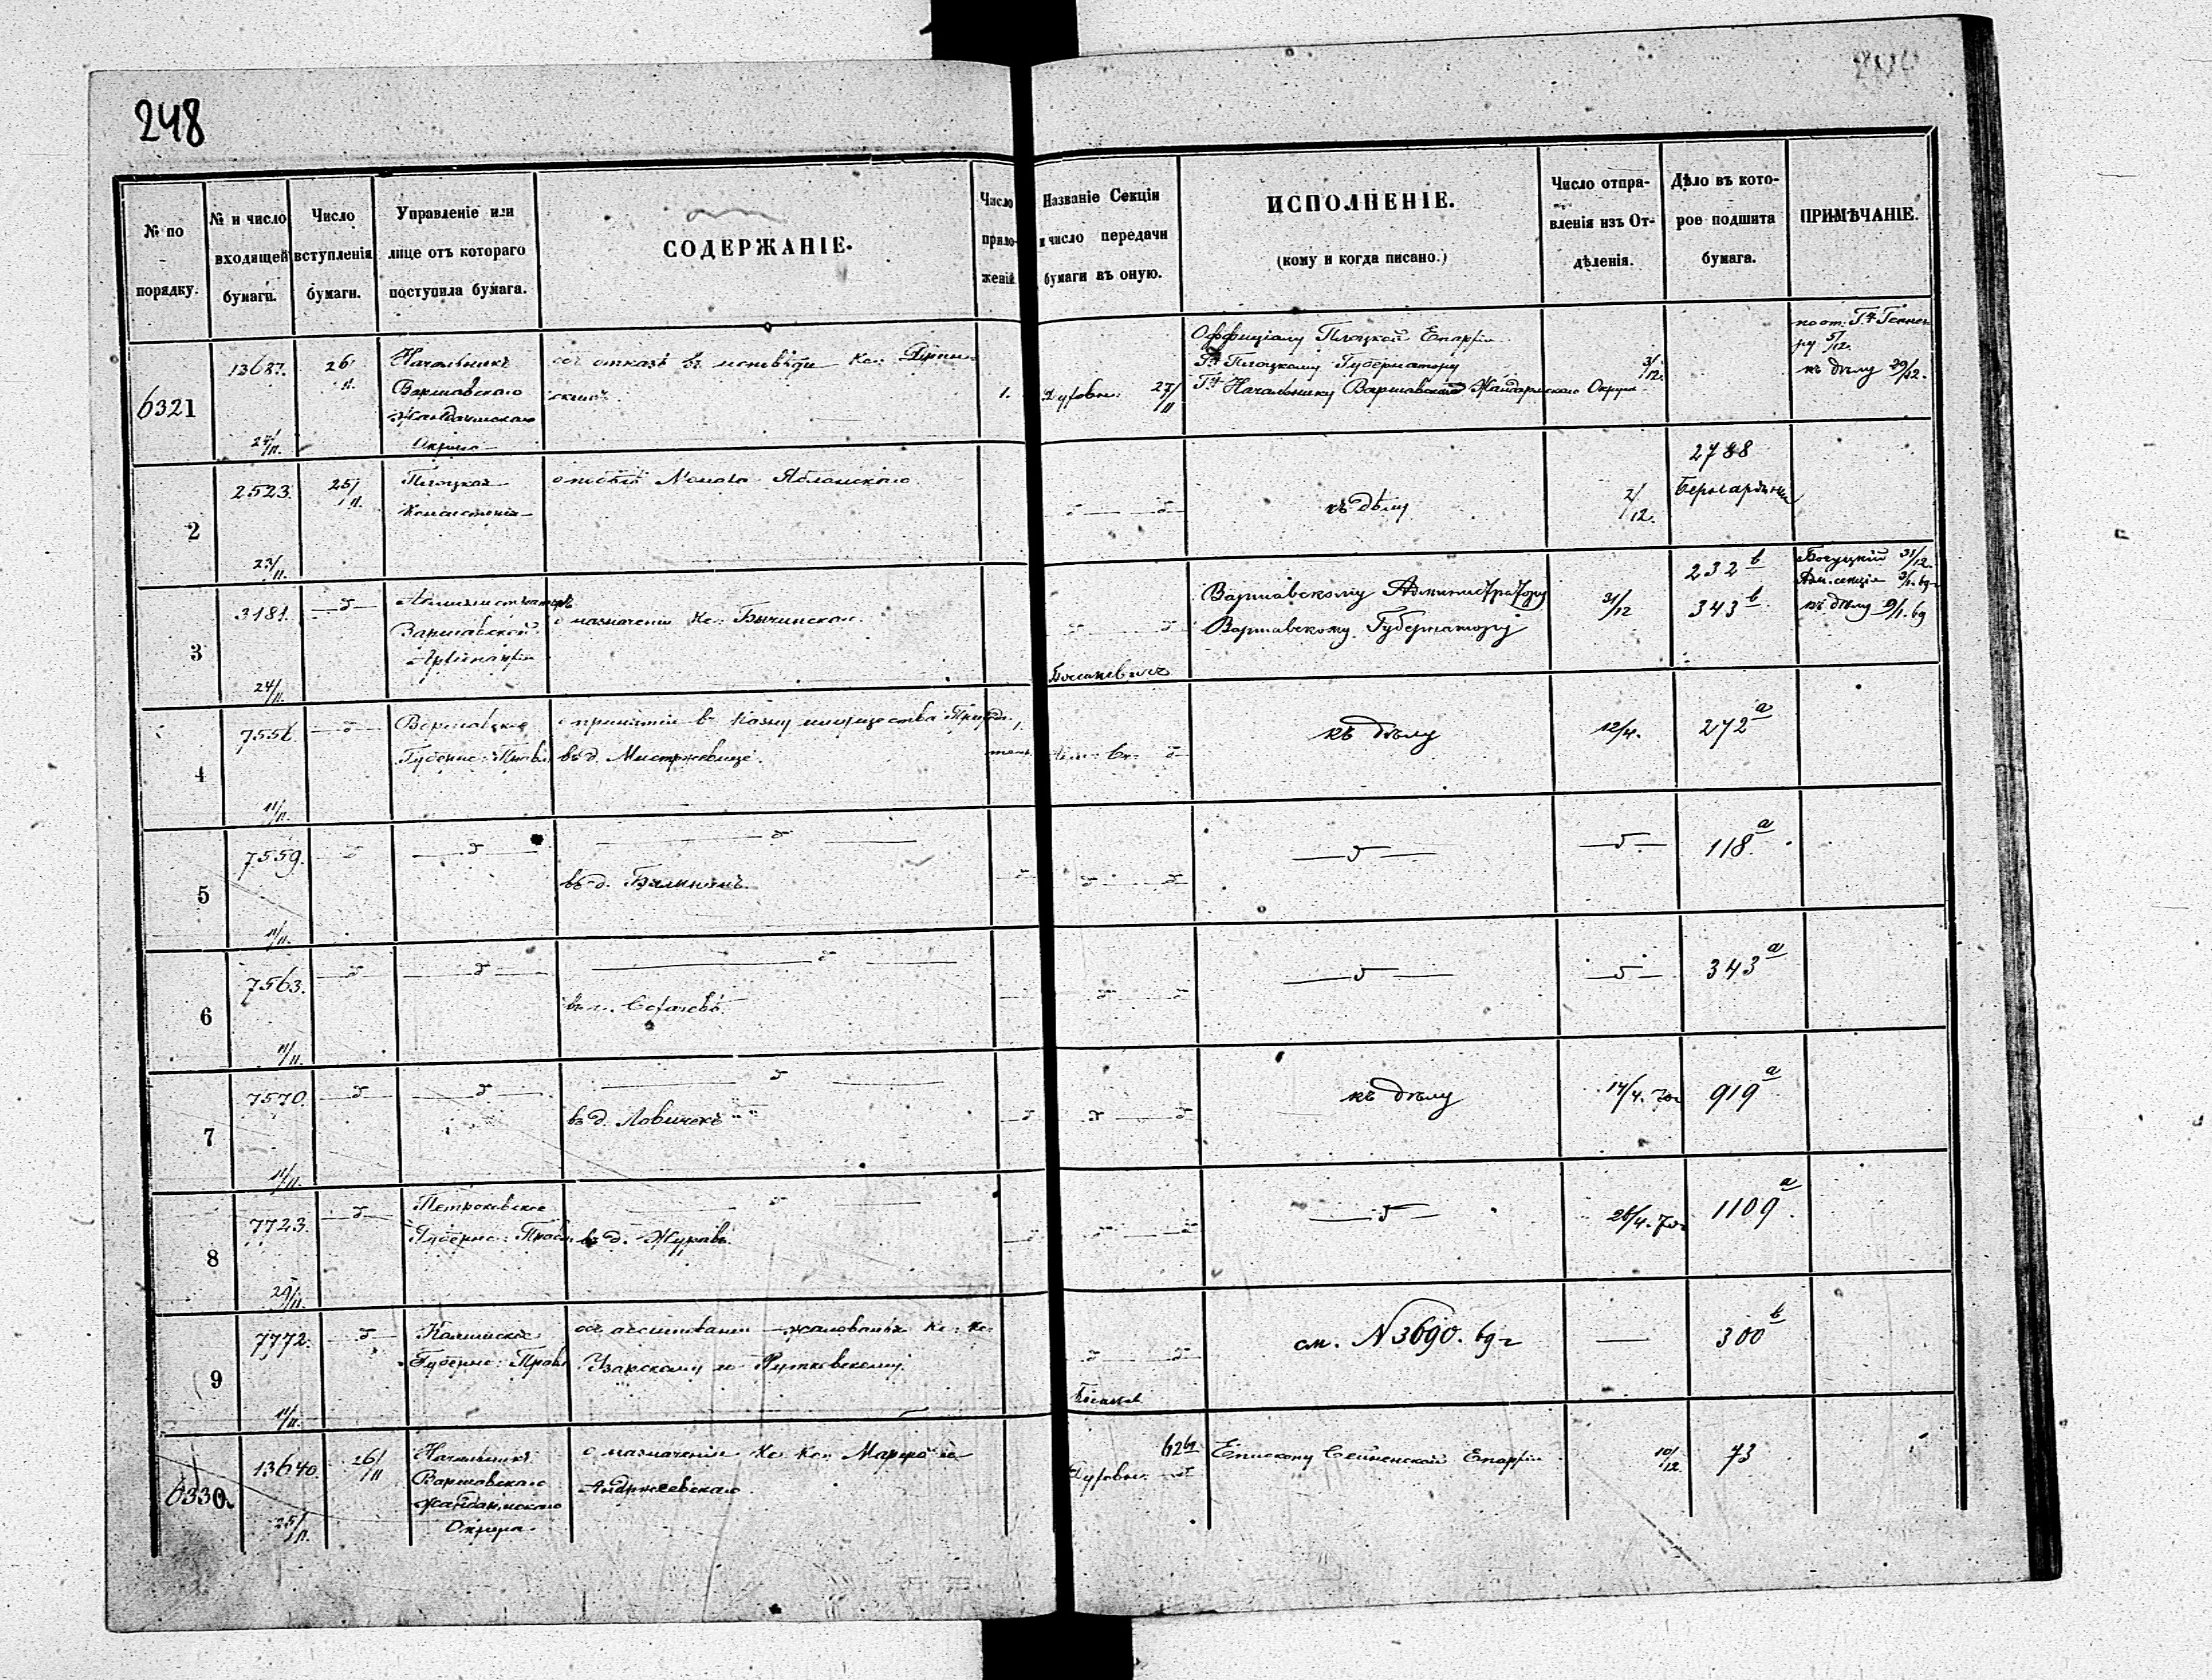 248
№ по порядку.
№ и число входящей бумаги.
Число вступленія бумаги.
Управленіе или лице отъ котораго поступила бумага.
СОДЕРЖАНІЕ.
Число приложеній
Названіе Секціи и число передачи бумаги въ оную.
ИСПОЛНЕНІЕ.
(кому и когда писано.)
Число отправленія изъ Отдѣленія.
Дѣло въ которое подшита бумага.
ПРИМѢЧАНІЕ.
6321
13687.
27/11.
26/11.
Начальникъ
Варшавскаго
Жандармскаго
Округа
объ отказѣ въ исповѣди Кс.
1.
Духовн: 27/11
Оффиціалу Плоцкой Епархіи
Гну Плоцкому Губернатору
Гну Начальнику Варшавскаго Жандармскаго Округа
3/12.
къ дѣлу 30/12.
2
2523.
23/11.
25/11.
Плоцкая
Консисторія
о побѣгѣ Монаха Яблонскаго
къ дѣлу
2/12.
2788
Бернардины
3
3181.
24/11.
Администраторъ
Варшавской
Архіепархіи
о назначеніи Кс. Бычинскаго.
Варшавскому Администратору
Варшавскому Губернатору
31/12
232 в
343 в
Богуцкій 31/12.
Адм. секція
къ дѣлу 9/1. 69
4
7556
11/11.
Варшавское
Губернс: Правл.
о принятіи въ Казну имущества
въ д. Мистржевице.
къ дѣлу
12/4.
272 а
5
7559.
11/11.
въ д. Бялынинъ.
118 а
6
7563.
11/11.
въ г. Сохачевѣ.
343 а
7
7570.
11/11.
въ д. Ловичекъ
къ дѣлу
14/4. 70г
919 а
8
7723.
29/11.
Петроковское
Губернс: Правл.
въ д. Журавъ.
26/4. 70г
1109 а
9
7772.
11/11.
Калишское
Губернс: Правл
объ ассигнованіи жалованья Кс. Кс.
и Рутковскому.
см. N 3690. 69 г
300 в
6330.
13640.
25/11.
26/11
Начальникъ
Варшавскаго
Жандармскаго
Округа.
о назначеніи Кс. Кс. и
Андржеевскаго.
Духовн:
Епископу Сейненской Епархіи
10/12.
73